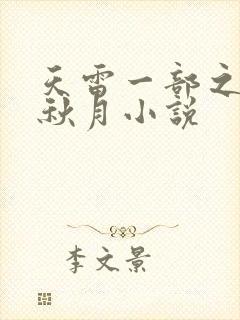 天雷一部之
秋月小説
李文景